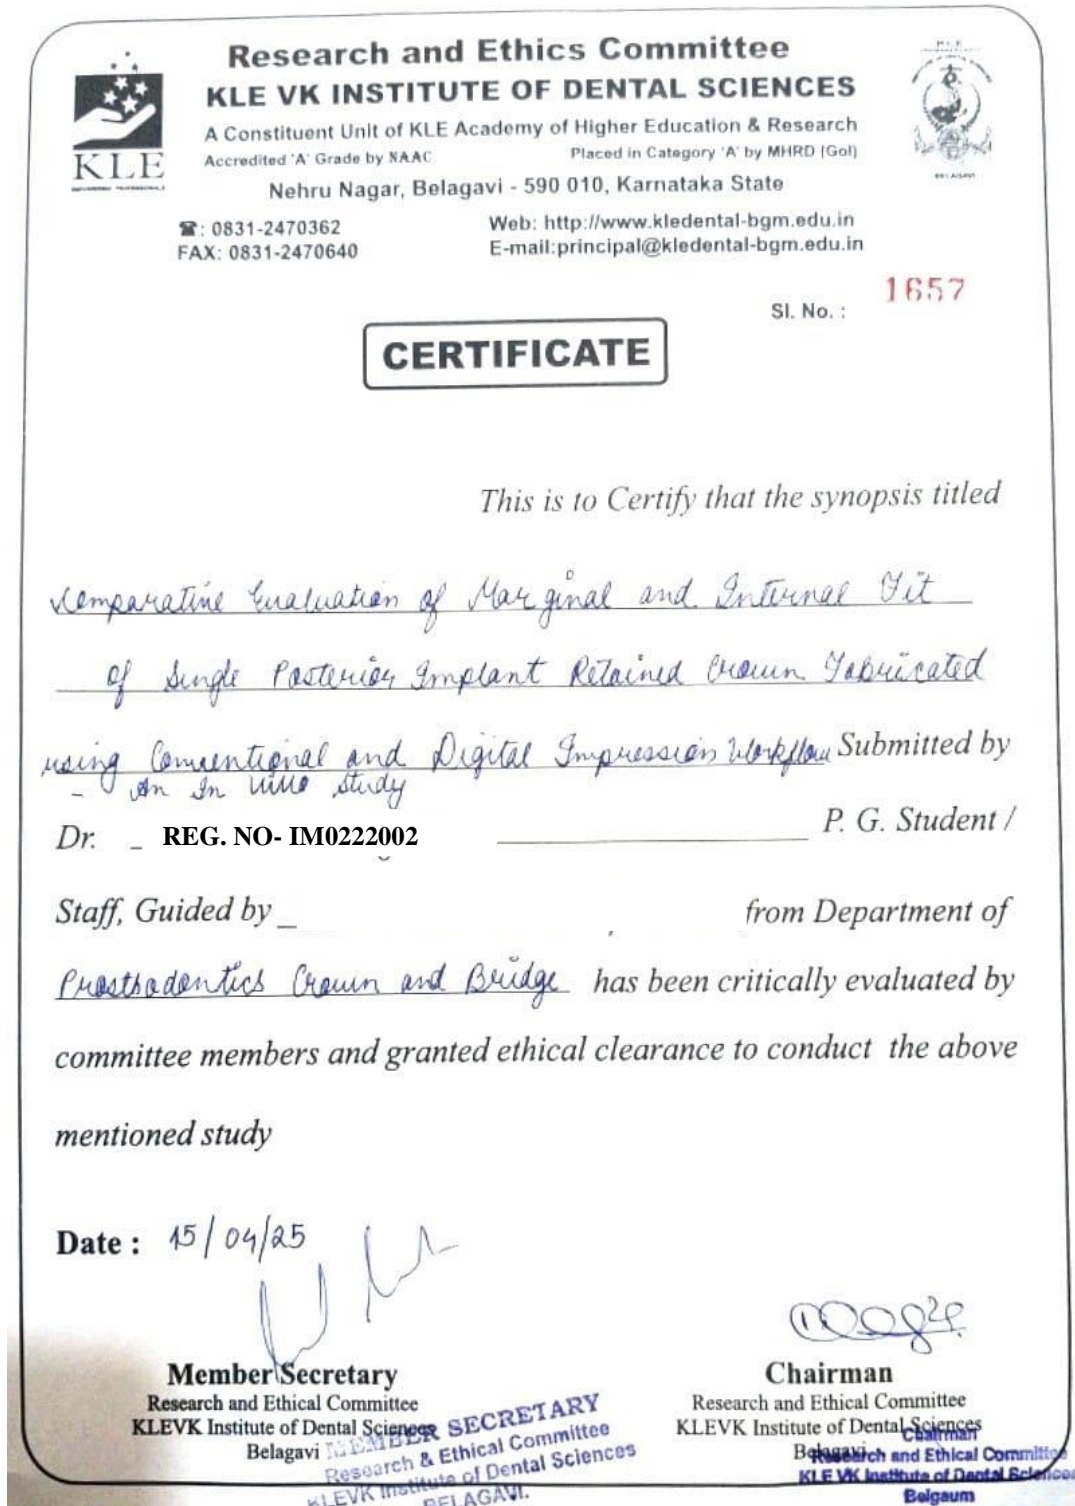 Research and Ethics Committee
KLE VK INSTITUTE OF DENTAL SCIENCES
A Constituent Unit of KLE Academy of Higher Education & Research
Accredited 'A' Grade by NAAC Placed in Category 'A' by MHRD (GoI)
Nehru Nagar, Belagavi - 590 010, Karnataka State
KLE
EMPOWERING PROFESSIONALS
BELAGAVI
☎: 0831-2470362 Web: http://www.kledental-bgm.edu.in
FAX: 0831-2470640 E-mail:principal@kledental-bgm.edu.in
Sl. No. : 1657
CERTIFICATE
This is to Certify that the synopsis titled
Comparative Evaluation of Marginal and Internal Fit
of Single Posterior Implant Retained Crown Fabricated
using Conventional and Digital Impression Workflow Submitted by
- An In Study
Dr. _ REG. NO- IM0222002 P. G. Student /
Staff, Guided by _ from Department of
Prosthodontics Crown and Bridge has been critically evaluated by
committee members and granted ethical clearance to conduct the above
mentioned study
Date : 15/04/25
Member Secretary Chairman
Research and Ethical Committee Research and Ethical Committee
KLEVK Institute of Dental Sciences KLEVK Institute of Dental Sciences
Belagavi Belagavi
MEMBER SECRETARY
Research & Ethical Committee
KLEVK Institute of Dental Sciences
BELAGAVI.
Chairman
Research and Ethical Committee
KLE VK Institute of Dental Sciences
Belgaum